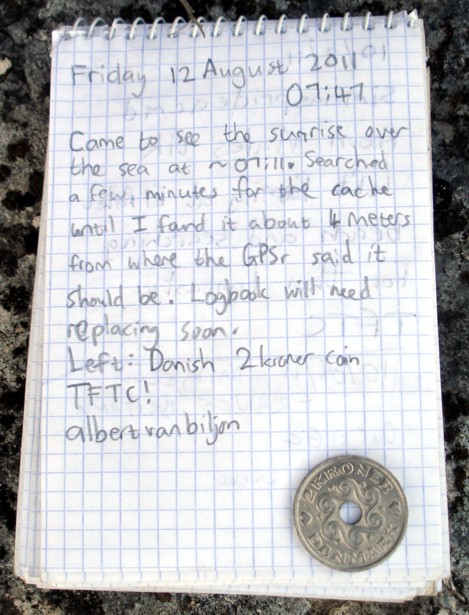 Friday 12 August 2011
07:47
Came to see the sunrise over
the sea at ~07:11. Searched
a few minutes for the cache
until I found it about 4 meters
from where the GPSr said it
should be. Logbook will need
replacing soon.
Left: Danish 2 kroner coin
TFTC!
albertvanbiljon
2 KRONER
DANMARK